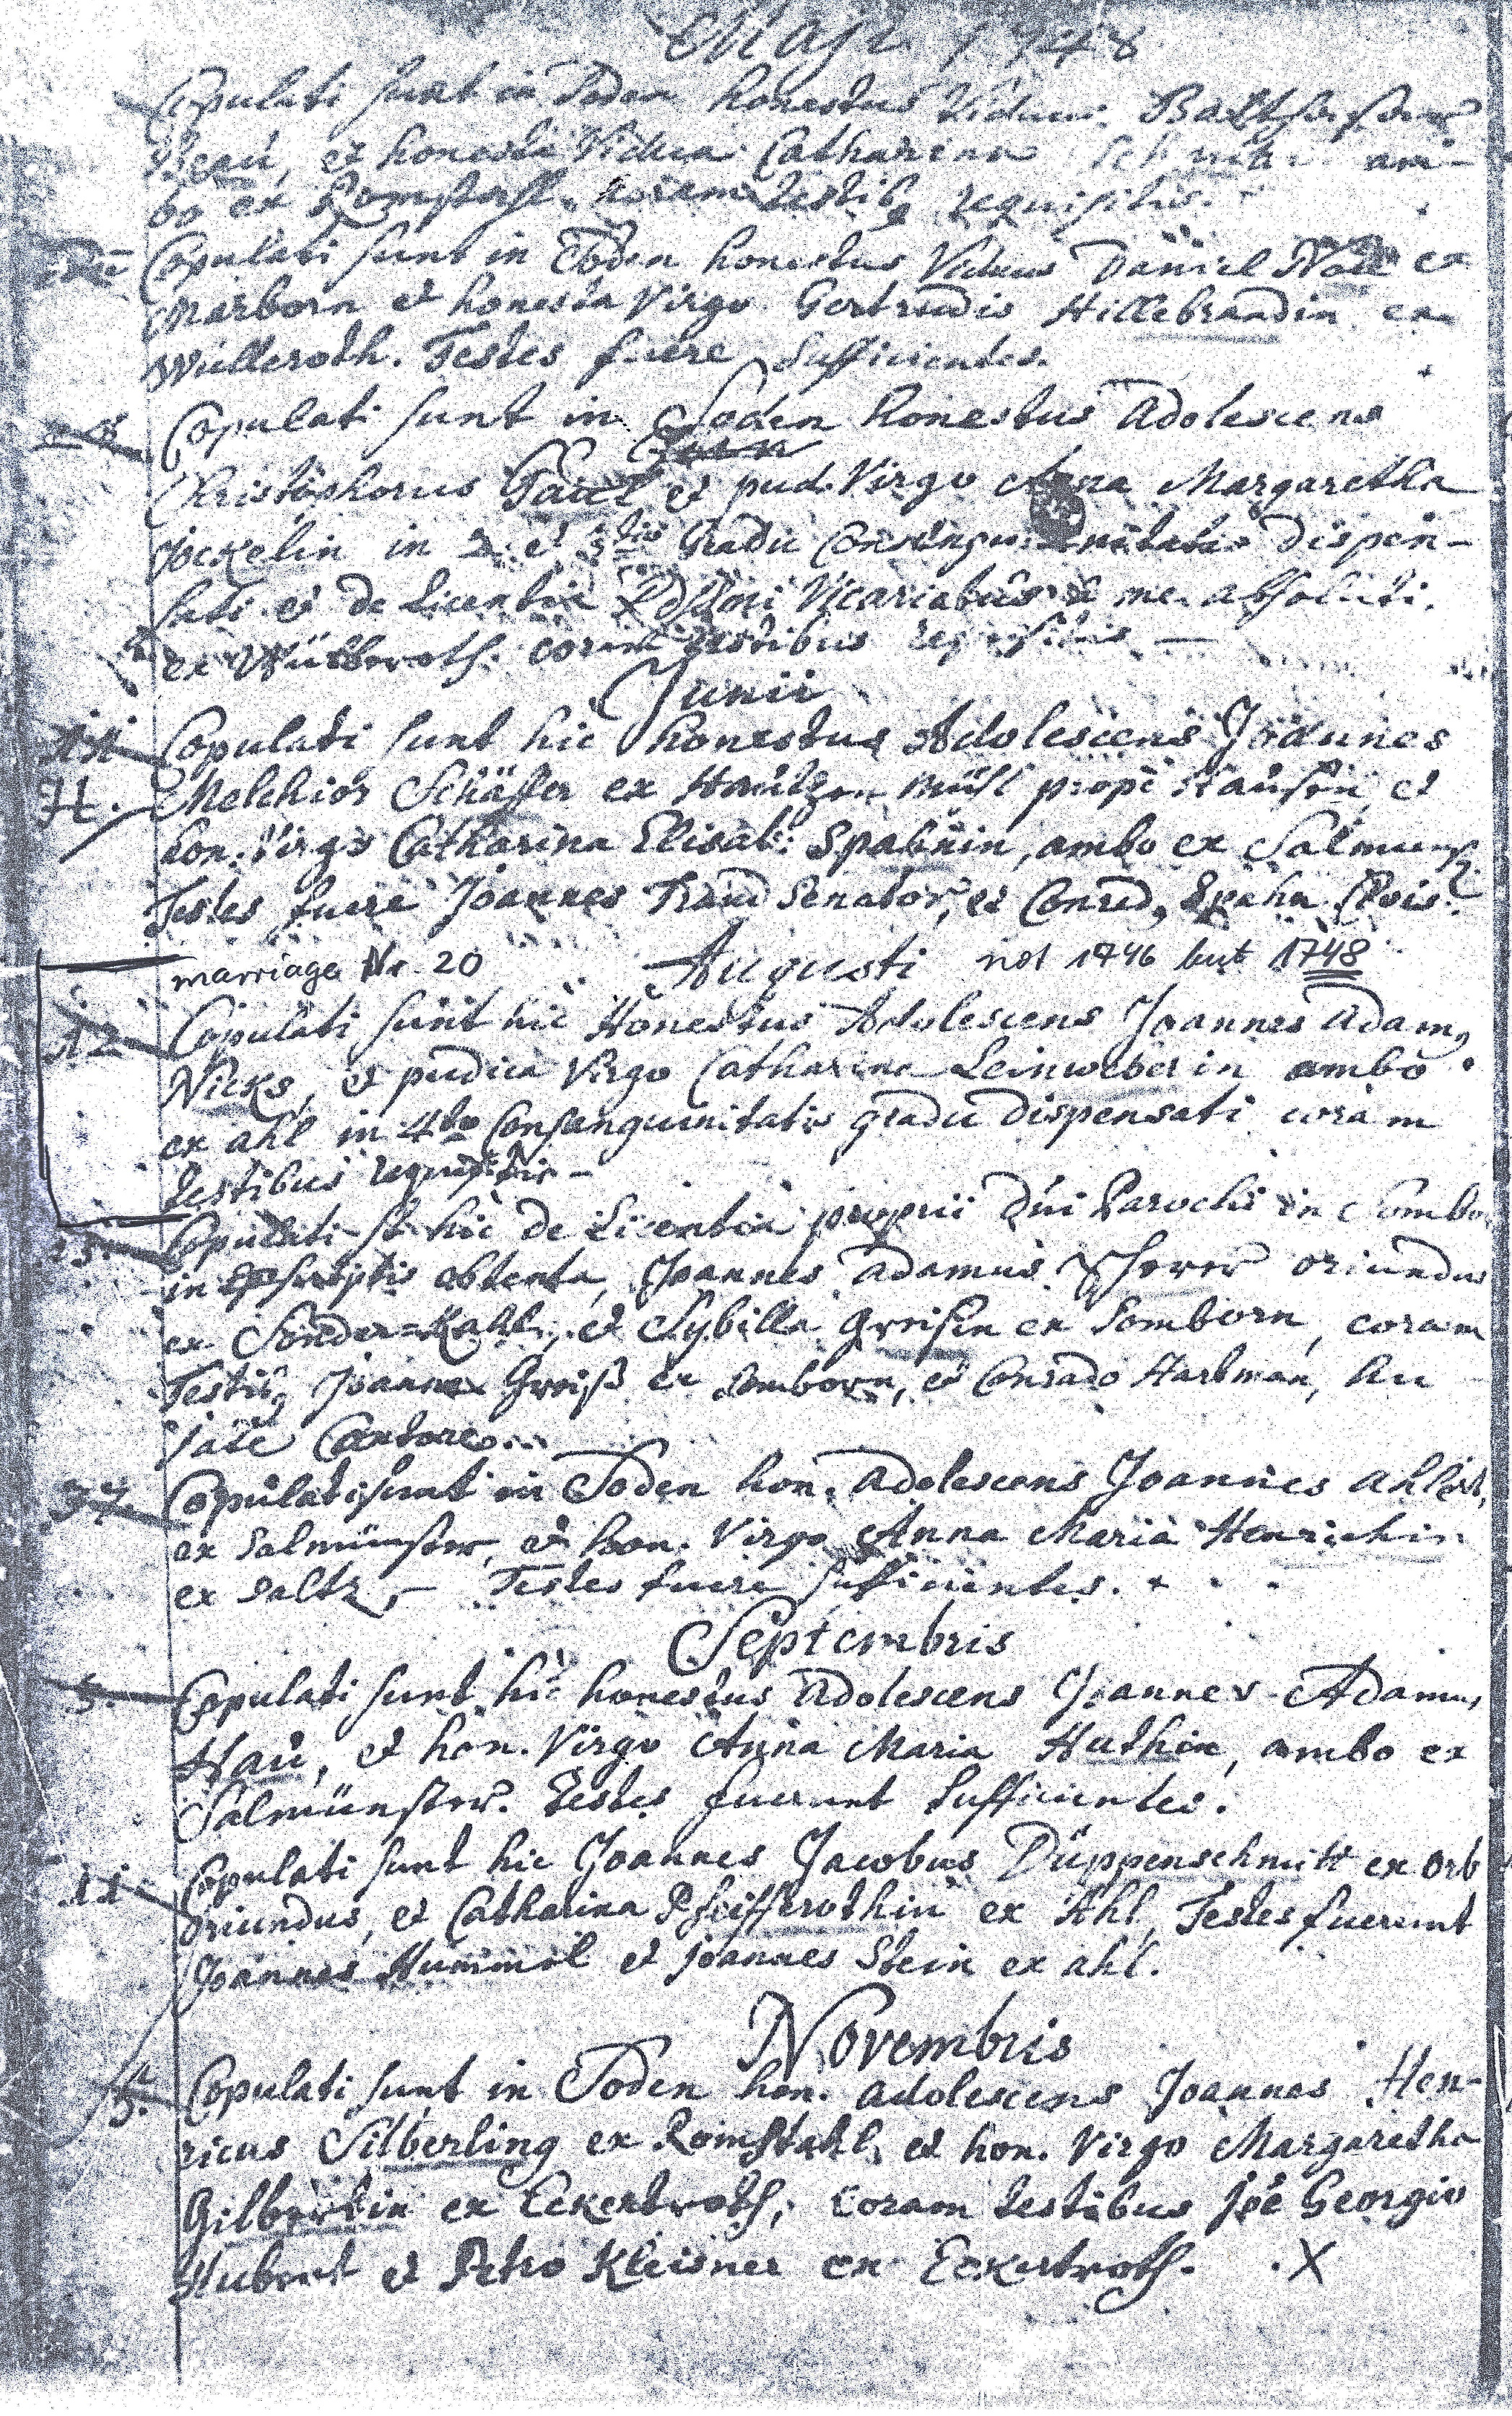 Maji 1748
Copulati sunt in Soden honestus Viduus Balthasar
et honesta Vidua Catharina am-
bo ex Romsthall. coram testib9 requisitis.
Copulati sunt in Soden honestus Viduus Daniel Noll ex
Marborn et honesta Virgo Gertrudis Hillebrandin ex
Wülleroth. Testes fuere sufficientes.
Copulati sunt in Soden honestus Adolescens
Christophorus Paul et pud. Virgo Anna Margaretha
Jöckelin in 2. et 3tio Gradu Consanguinitatis dispen-
sati et de Licentia Vicariatus a me absoluti.
ex coram testibus requisitis —
Junii
11. Copulati sunt hic honestus Adolescens Joannes
H. Melchior Schäffer ex mühl propè Hausen, et
hon. Virgo Catharina Elisab: Spahnin, ambo ex Salmunst.
Testes fuere Joannes Traud Senator, et Conrad9 Spahn Civis.
marriage Nr. 20 Augusti not 1746 but 1748
12 Copulati sunt hic Honestus Adolescens Joannes Adam9
Nicks, et pudica Virgo Catharina Leinweberin ambo
ex ahl in 4to Consanguinitatis gradu dispensati coram
testibus requisitis —
Copulati st hic de Licentia proprii Dni Parochi in Sombo
in scriptis obtenta, Joannes Adamus oriundus
ex Sonder=Kahl, et Sybilla Greisin ex Somborn, coram
Testib9 Joanne Greiß ex Somborn, et Conrado Hartman, hu
jate Cantore.
27. Copulati sunt in Soden hon. Adolescens Joannes Ahlert,
ex Salmünster, et hon. Virgo Anna Maria Henrichin
ex Saltz, — Testes fuere sufficientes.
Septembris
3. Copulati sunt hic honestus Adolescens Joannes Adamus
Hau, et hon. Virgo Anna Maria Huthin, ambo ex
Salmünster. Testes fuerunt sufficientes.
11 Copulati sunt hic Joannes Jacobus Düppenschmitt ex Orb
Oriundus, et Catharina Pfeifferothin ex Ahl, Testes fuerunt
Joannes Hummel et Joannes Stein ex ahl.
Novembris
Copulati sunt in Soden hon. adolescens Joannes Hen-
ricus Silberling ex Romsthahl, et hon. Virgo Margaretha
Gilbertin ex Eckertroth, coram testibus Joe Georgio
Hubert et Petro Kleisner ex Eckertroth. X